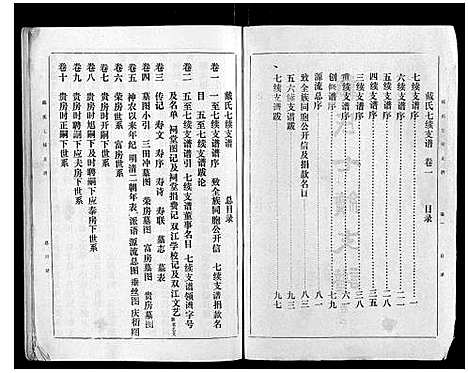 戴氏七续支谱 卷一 目录
七续支谱序 一
六续支谱序 一一
五续支谱序 二一
四续支谱序 二五
三续支谱序 三五
续修支谱序 四一
重修支谱序 六一
创修谱序 七九
源流总序 八一
致全族同胞公开信及捐款名目
五六续支谱跋 九三
七续支谱跋 九七
戴氏七续支谱 总目录
卷一 一至七续支谱谱序 致全族同胞公开信 七续支谱捐款名
目 五至七续支谱跋论
卷二 五至七续支谱谱引 七续支谱董事名目 七续支谱领谱字号
及名单 祠堂图记及祠堂捐费记 双江学校记及双江文艺
卷三 传记 寿文 寿序 寿诗 寿联 墓志 墓表
卷四 墓图小引 三田冲墓图 荣房墓图 富房墓图 贵房墓图
卷五 神农以来年纪 明清二朝年表 派语 源流总图 垂丝图 庆衍图
卷六 荣房世系 富房世系
卷七 贵房时中嗣下世系
卷八 贵房时旭嗣下及时聘嗣下应泰房下世系
卷九 贵房时聘嗣下应夫房下世系
卷十 贵房时正嗣下世系